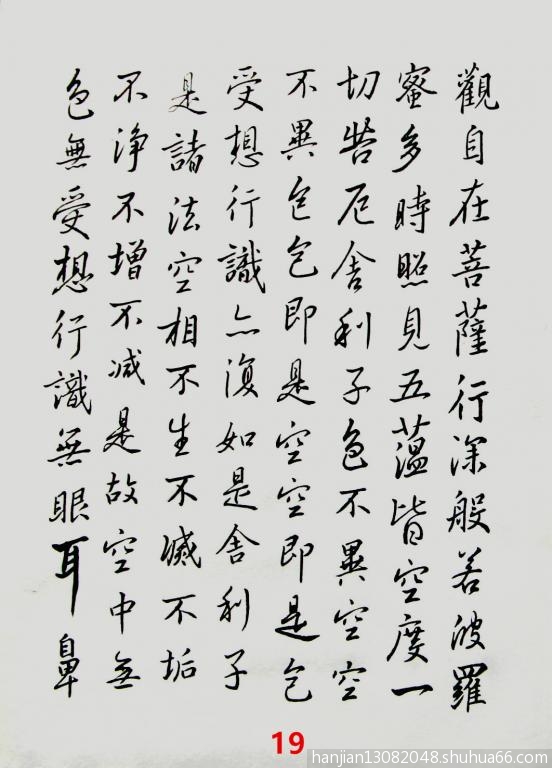 觀自在菩薩行深般若波羅
蜜多時照見五蘊皆空度一
切苦厄舍利子色不異空空
不異色色即是空空即是色
受想行識亦復如是舍利子
是諸法空相不生不滅不垢
不淨不增不減是故空中無
色無受想行識無眼耳鼻
19
hanjian13082048.shuhua66.com